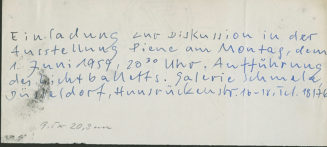 Einladung zur Diskussion in der
Ausstellung Piene am Montag, dem
1. Juni 1959, 20³⁰ Uhr. Aufführung
des Lichtballetts. Galerie Schmela
Düsseldorf, Hunsrückenstr. 16-18, Tel. 18176
9.5 x 20,8 cm